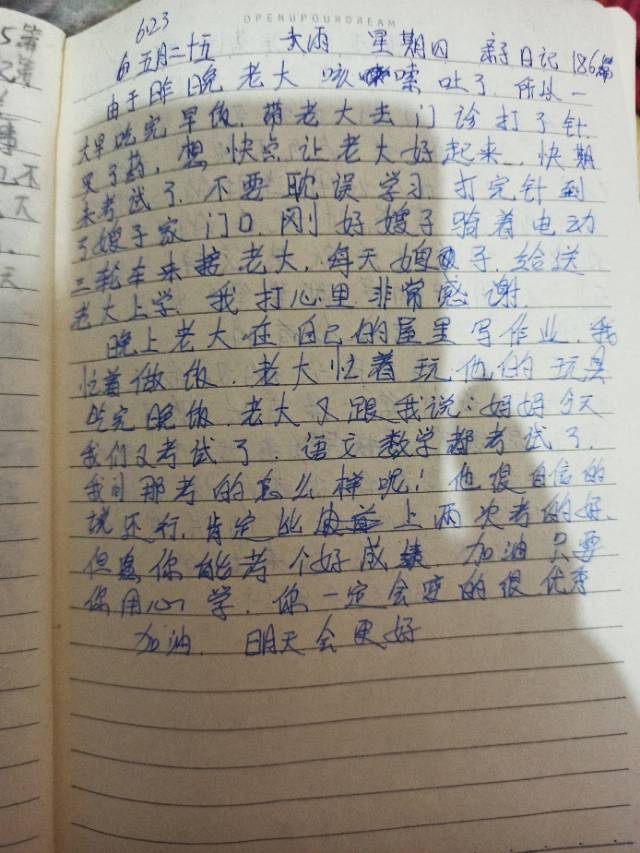 OPENUPOURDREAM
6.23
五月二十五 大雨 星期四 亲子日记 186篇
由于昨晚老大咳嗽吐了.所以一
大早吃完早饭.带老大去门诊打了针.
买了药,想快点让老大好起来..快期
末考试了.不要耽误学习.打完针到
了嫂子家门口.刚好嫂子骑着电动
三轮车来接老大.每天嫂子.给送
老大上学.我打心里非常感谢.
晚上老大在自己的屋里写作业.我
忙着做饭.老大忙着玩他的玩具
吃完晚饭.老大又跟我说:妈妈今天
我们又考试了.语文数学都考试了.
我问那考的怎么样呢!他很自信的
说还行.肯定比上两次考的好.
但愿你能考个好成绩.加油只要
你用心学.你一定会变的很优秀
加油.明天会更好